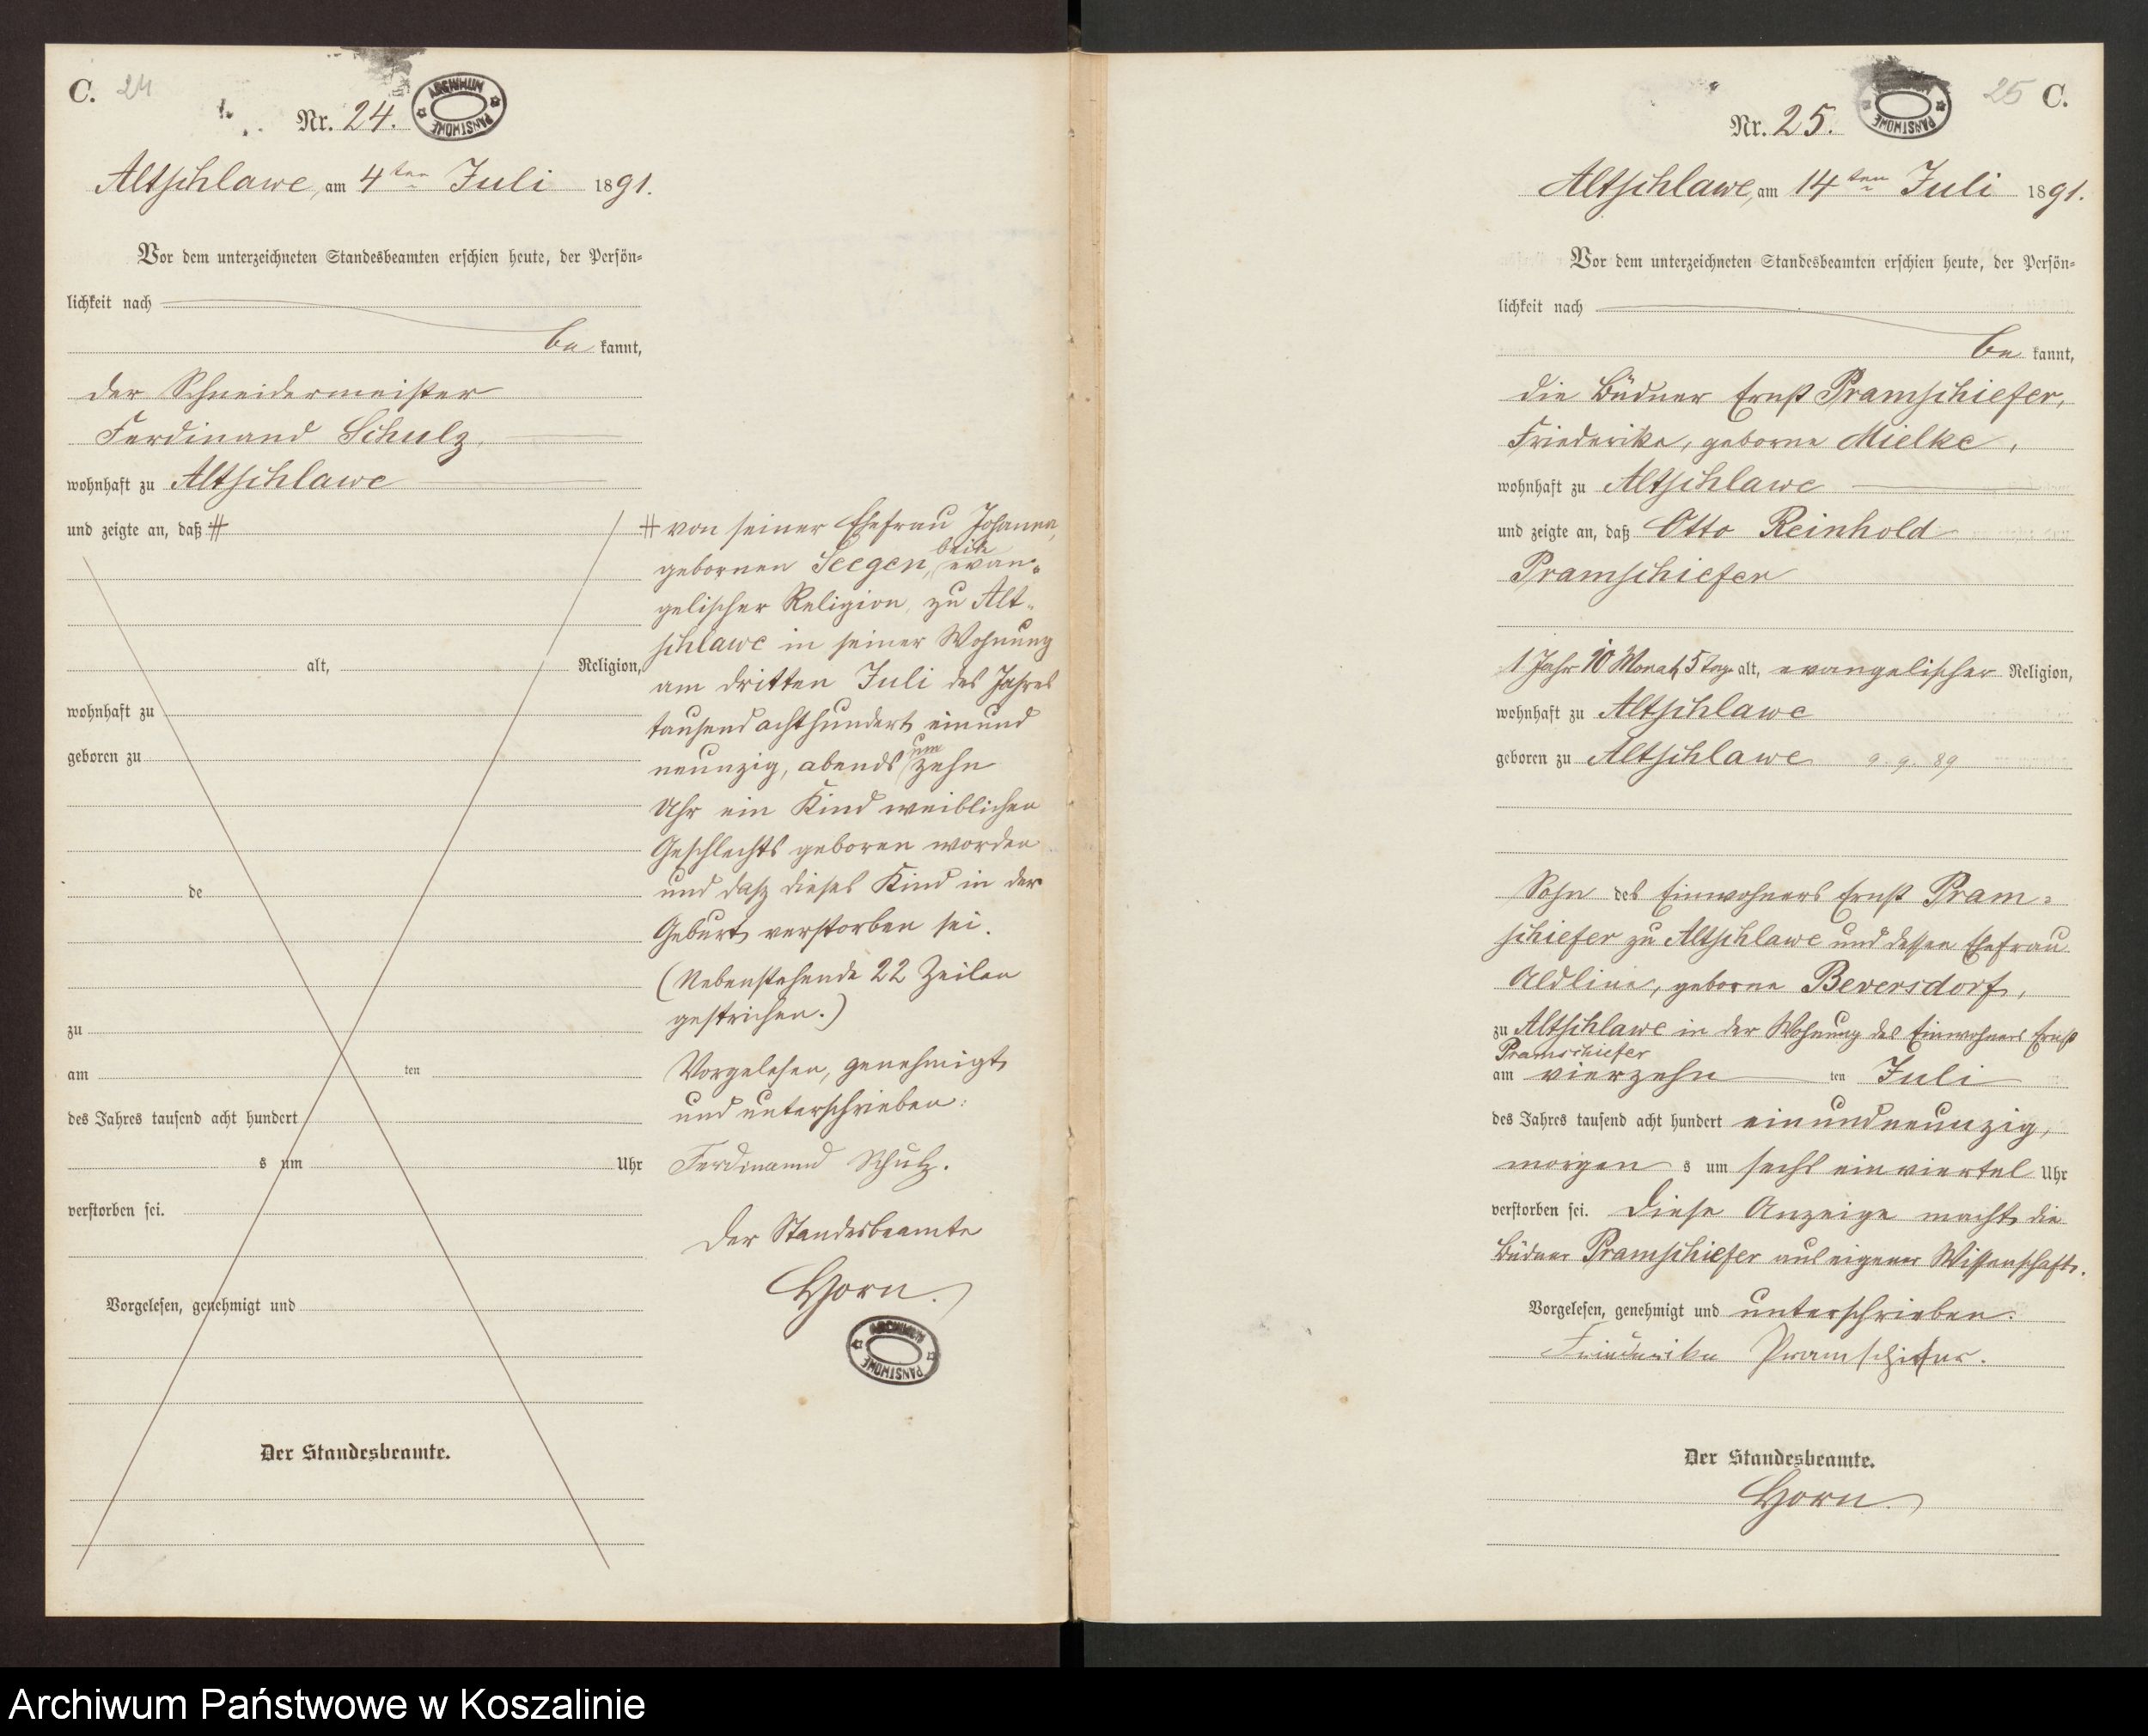 C. 24
Nr. 24.
ARCHIWUM PAŃSTWOWE
Altschlawe, am 4ten Juli 1891.
Vor dem unterzeichneten Standesbeamten erschien heute, der Persön=
lichkeit nach
be kannt,
der Schneidermeister
Ferdinand Schulz
wohnhaft zu Altschlawe
und zeigte an, daß #
alt, Religion,
wohnhaft zu
geboren zu
de
zu
am ten
des Jahres tausend acht hundert
s um Uhr
verstorben sei.
Vorgelesen, genehmigt und
Der Standesbeamte.
# von seiner Ehefrau Johanna,
gebornen Seegen, beide evan=
gelischer Religion, zu Alt=
schlawe in seiner Wohnung
am dritten Juli des Jahres
tausend achthundert ein und
neunzig, abends um zehn
Uhr ein Kind weiblichen
Geschlechts geboren worden
und daß dieses Kind in der
Geburt verstorben sei.
(Nebenstehende 22 Zeilen
gestrichen.)
Vorgelesen, genehmigt
und unterschrieben:
Ferdinannd Schulz.
Der Standesbeamte
Horn.
ARCHIWUM PAŃSTWOWE
25 C.
Nr. 25.
ARCHIWUM PAŃSTWOWE
Altschlawe, am 14ten Juli 1891.
Vor dem unterzeichneten Standesbeamten erschien heute, der Persön=
lichkeit nach
be kannt,
die Büdner Ernst Pramschiefer,
Friederike, geborne Mielke,
wohnhaft zu Altschlawe
und zeigte an, daß Otto Reinhold
Pramschiefer
1 Jahr 10 Monat, 5 Tage alt, evangelischer Religion,
wohnhaft zu Altschlawe
geboren zu Altschlawe 9. 9. 89
Sohn des Einwohners Ernst Pram=
schiefer zu Altschlawe und dessen Ehefrau
geborne Beversdorf,
zu Altschlawe in der Wohnung des Einwohners Ernst
Pramschiefer
am vierzehn ten Juli
des Jahres tausend acht hundert ein und neunzig,
morgen s um sechs ein viertel Uhr
verstorben sei. Diese Anzeige macht die
Büdner Pramschiefer aus eigener Wissenschaft.
Vorgelesen, genehmigt und unterschrieben.
Friederike Pramschifer.
Der Standesbeamte.
Horn.
Archiwum Państwowe w Koszalinie